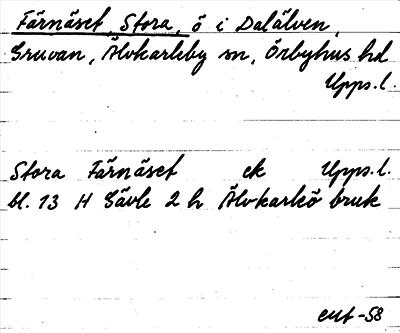 Färnäset, Stora, ö i Dalälven,
Gruvan, Älvkarleby sn, Örbyhus hd
Upps.l.
Stora Färnäset ek Upps.l.
bl. 13 H Gävle 2 h Älvkarleö bruk
eut -58